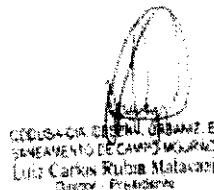 CODUSA-CIA. DESENV. URBANIZ. E
SANEAMENTO DE CAMPO MOURÃO
Luiz Carlos Rubia
Diretor - Presidente